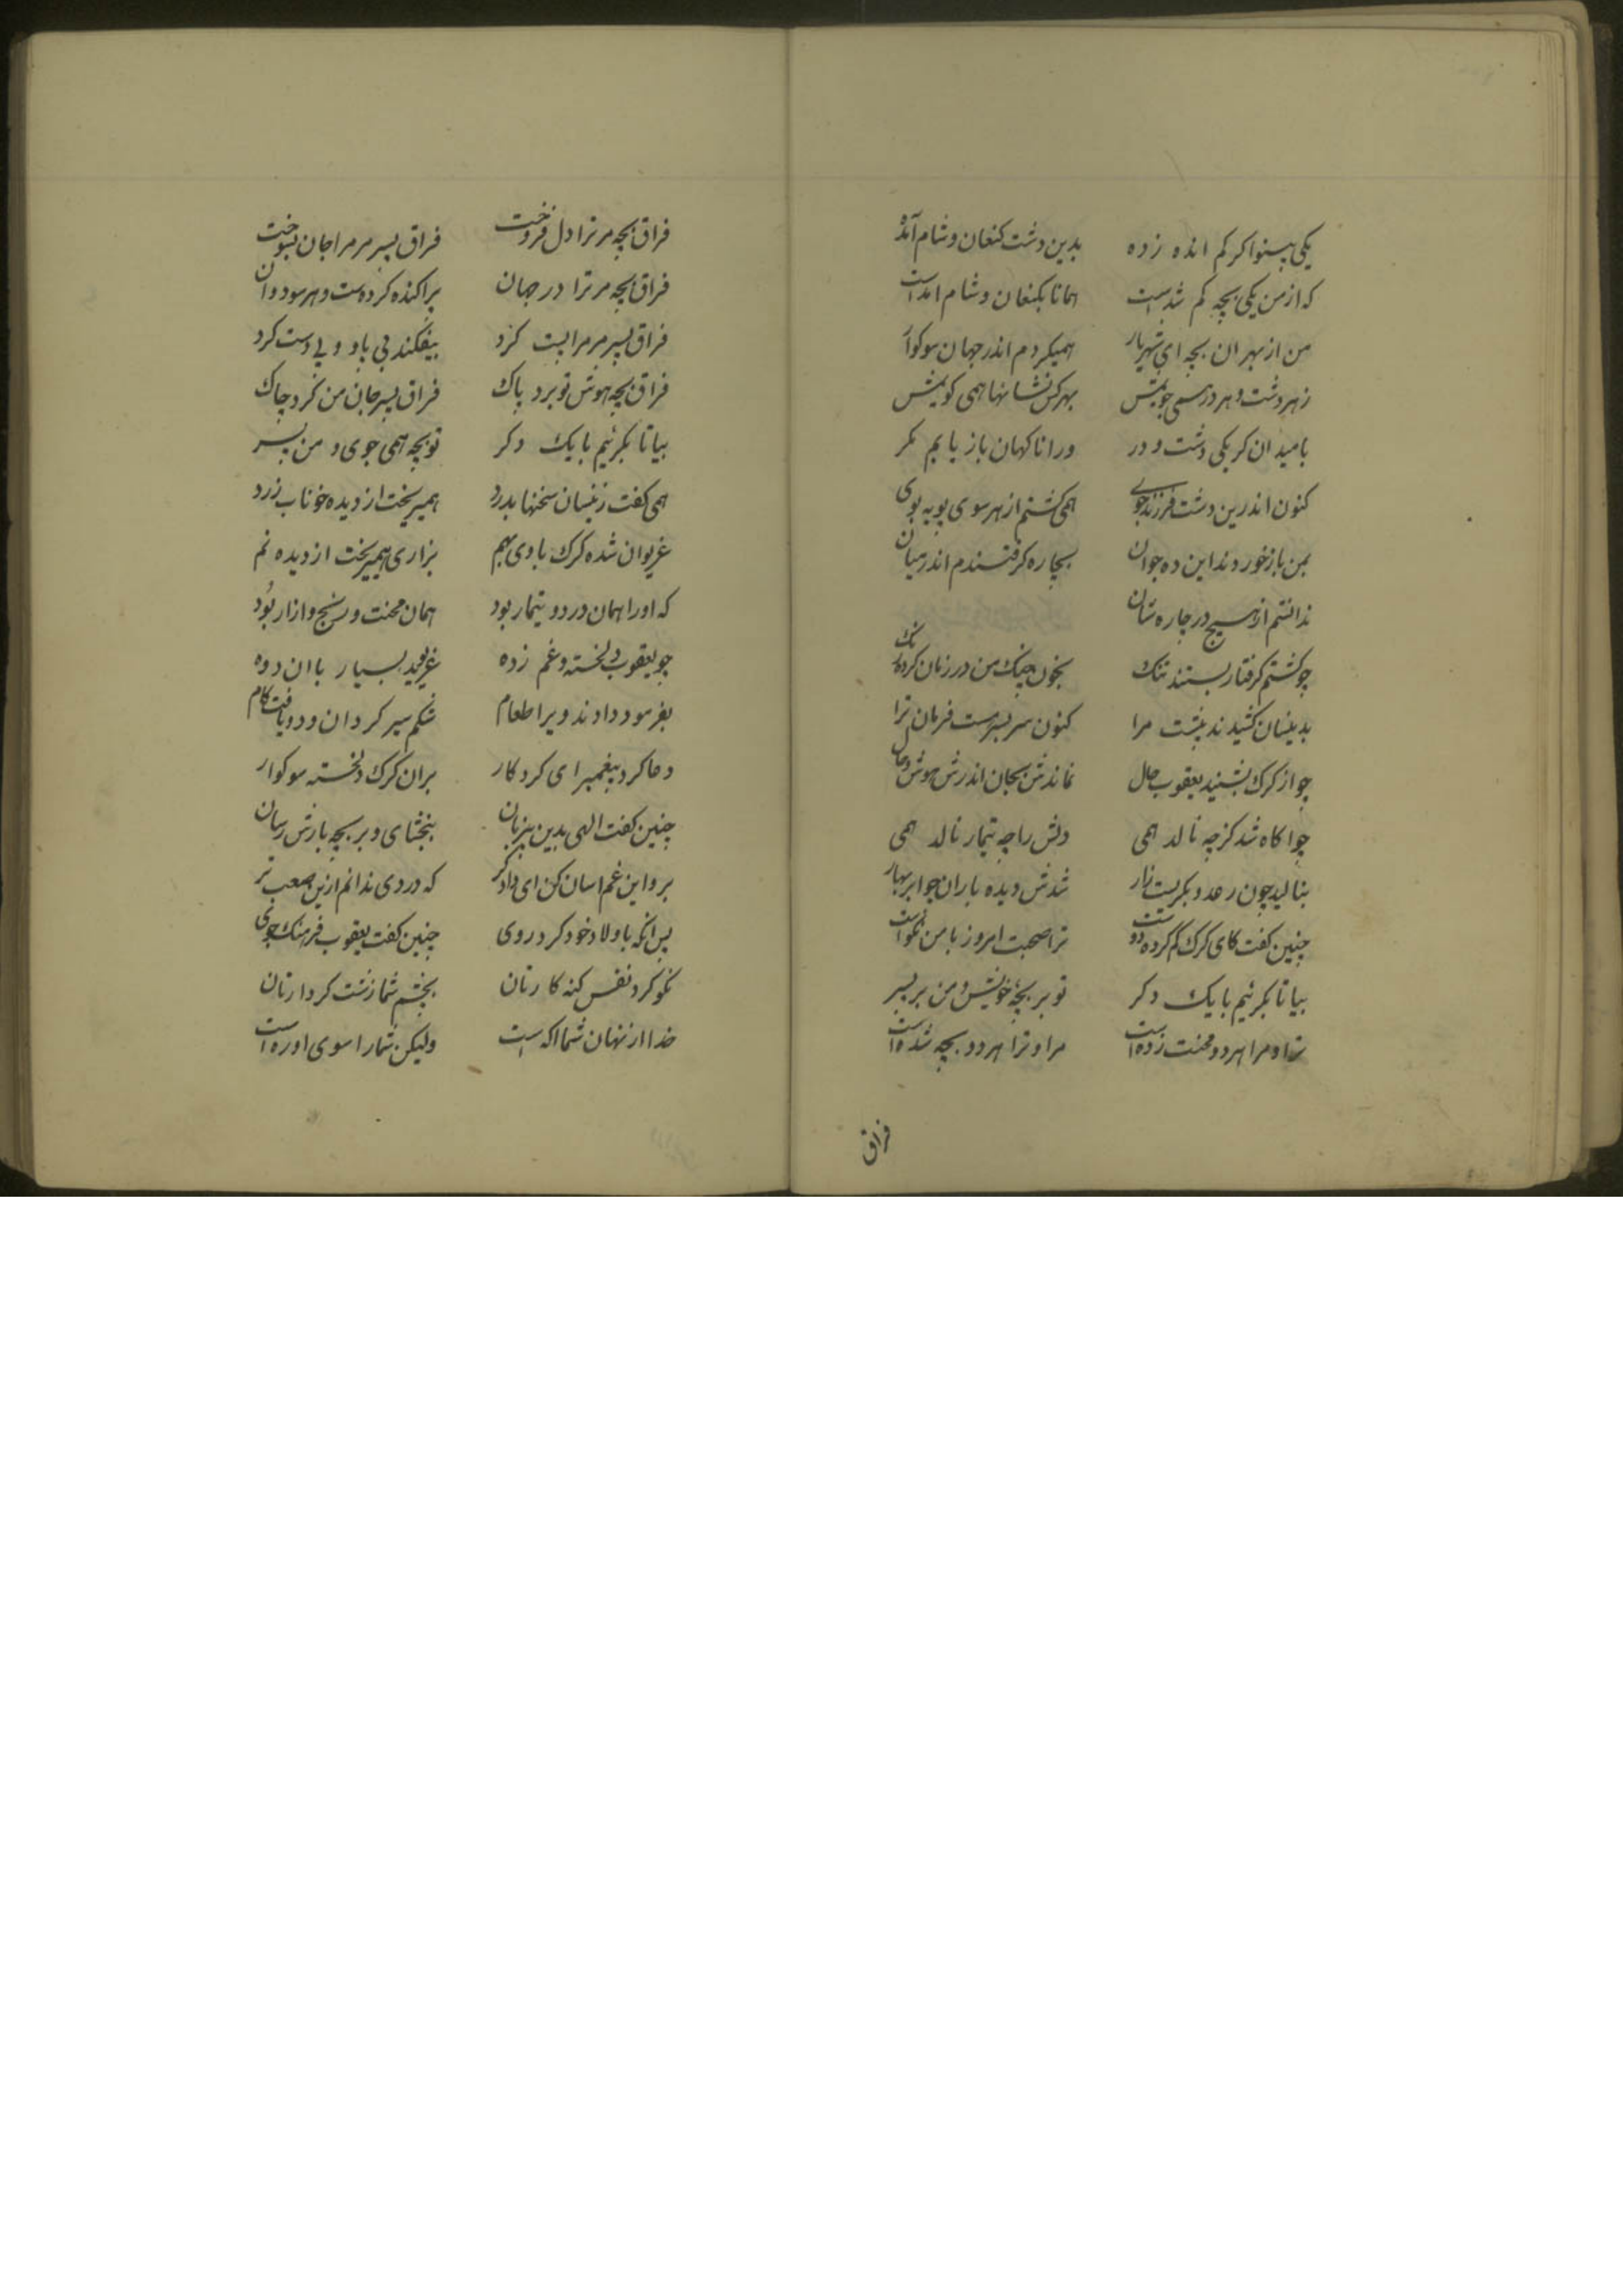 یکی بینوا کرکم انده زده بدین دشت کنعان و شام آمده
که از من یکی بچه کم شدست همانا بکنعان و شام امدست
من از بهر ان بچه ای شهریار همیکردم اندر جهان سوکوار
ز هر دشت و هر در همی جویمش بهر کس نشانها همی کویمش
بامید ان کز یکی دشت و در ورا ناکهان باز یابم مکر
کنون اندرین دشت فرزند جوی همی کشتم از هر سوی پویه پوی
بمن باز خوردند این ده جوان بچاره کرفتندم اندر میان
ندانستم از هیچ در چاره شان
چو کشتم کرفتار بستند تنک بخون چنک من در زمان کرده رنک
بدینسان کشیدند پیشت مرا کنون سر بسرست فرمان ترا
چو از کرک بشنید یعقوب حال نماندش بجان اندرش هوش و حال
چو اکاه شد کز چه نالد همی دلش را چه تیمار نالد همی
بنالید چون رعد و بکریست زار شدش دیده باران چو ابر بهار
چنین کفت کای کرک کم کرده دوست ترا صحبت امروز با من نکوست
بیا تا بکرئیم با یک دکر تو بر بچهٔ خویش و من بر پسر
ترا و مرا هر دو محنت زده است مرا و ترا هر دو بچه شده است
فراق
فراق بچه مر ترا دل فروخت فراق پسر مر مرا جان بسوخت
فراق بچه مر ترا در جهان پراکنده کردست و هر سو دوان
فراق پسر مر مرا پست کرد بیفکند بی پاو و بی دست کرد
فراق بچه هوش تو برد پاک فراق پسر جان من کرد چاک
بیا تا بکرئیم با یک دکر تو بچه همی جوی و من پسر
همی کفت زینسان سخنها بدرد همیریخت از دیده خوناب زرد
غریوان شده کرک با وی بهم بزاری همیریخت از دیده نم
که او را همان درد و تیمار بود همان محنت و رنج و ازار بود
چو یعقوب دلخسته و غم زده غریوید بسیار با ان دده
بفرمود دادند ویرا طعام شکم سیر کرد ان دد و یافت کام
دعا کرد پیغمبرای کردکار بران کرک دلخسته سوکوار
چنین کفت الهی بدین بیزبان ببخشای و بر بچه بازش رسان
برو این غم اسان کن ای دادکر که دردی ندانم ازین صعب تر
پس انکه باولاد خود کرد روی چنین کفت یعقوب فرهنک جوی
نکو کرد نفس کنه کارتان بچشم شما زشت کردارتان
خدا از نهان شما اکه است ولیکن شما را سوی او ره است